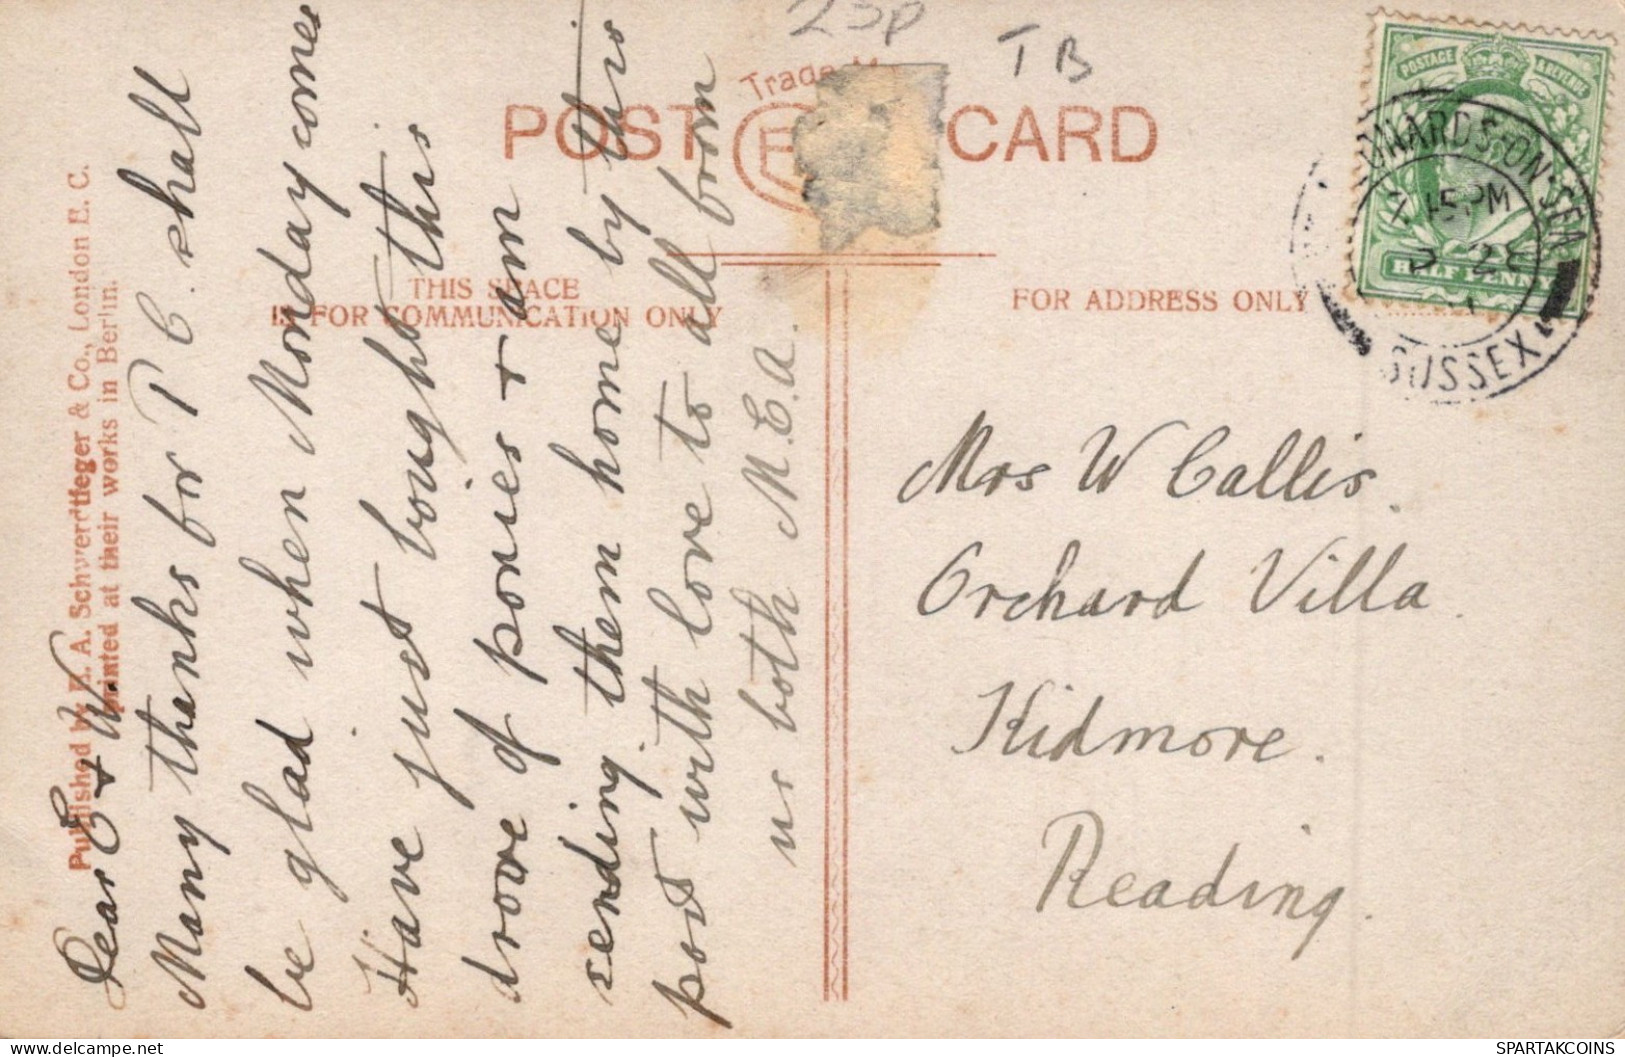 23p
T B
Trade
POST CARD
THIS SPACE
IS FOR COMMUNICATION ONLY
FOR ADDRESS ONLY
Published by E. A. Schwerdtfeger & Co., London E. C.
printed at their works in Berlin.
POSTAGE & REVENUE
HALF PENNY
ONARDS-ON-SEA
45 PM
SUSSEX
Dear E & W
Many thanks for P C. shall
be glad when Monday comes
Have just bought this
drove of ponies & am
sending them home by this
post with love to all from
us both M.E.A.
Mrs W Callis.
Orchard Villa.
Kidmore.
Reading.
SPARTAKCOINS